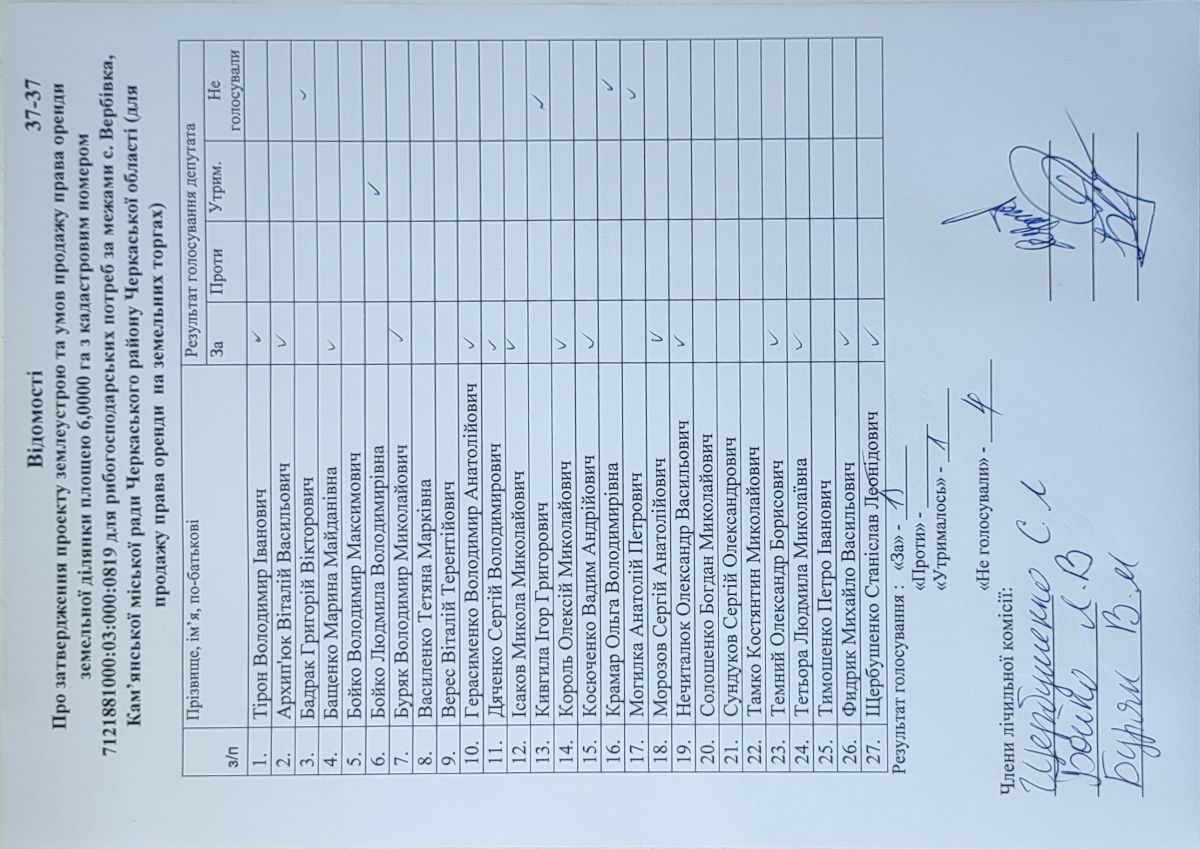 Відомості 37-37
Про затвердження проекту землеустрою та умов продажу права оренди
земельної ділянки площею 6,0000 га з кадастровим номером
7121881000:03:000:0819 для рибогосподарських потреб за межами с. Вербівка,
Кам’янської міської ради Черкаського району Черкаської області (для
продажу права оренди на земельних торгах)
з/п Прізвище, ім’я, по-батькові Результат голосування депутата
За Проти Утрим. Не голосували
1. Тірон Володимир Іванович ✓
2. Архип'юк Віталій Васильович ✓
3. Бадрак Григорій Вікторович ✓
4. Бащенко Марина Майданівна ✓
5. Бойко Володимир Максимович
6. Бойко Людмила Володимирівна ✓
7. Буряк Володимир Миколайович ✓
8. Василенко Тетяна Марківна
9. Верес Віталій Терентійович
10. Герасименко Володимир Анатолійович ✓
11. Дяченко Сергій Володимирович ✓
12. Ісаков Микола Миколайович ✓
13. Кивгила Ігор Григорович ✓
14. Король Олексій Миколайович ✓
15. Косюченко Вадим Андрійович ✓
16. Крамар Ольга Володимирівна ✓
17. Могилка Анатолій Петрович ✓
18. Морозов Сергій Анатолійович ✓
19. Нечиталюк Олександр Васильович ✓
20. Солошенко Богдан Миколайович
21. Сундуков Сергій Олександрович
22. Тамко Костянтин Миколайович
23. Темний Олександр Борисович ✓
24. Тетьора Людмила Миколаївна ✓
25. Тимошенко Петро Іванович
26. Фидрик Михайло Васильович ✓
27. Щербушенко Станіслав Леонідович ✓
Результат голосування : «За» - 15
«Проти» -
«Утрималось» - 1
«Не голосували» - 4
Члени лічильної комісії:
Щербушенко С Л
Бойко Л.В
Буряк В.М